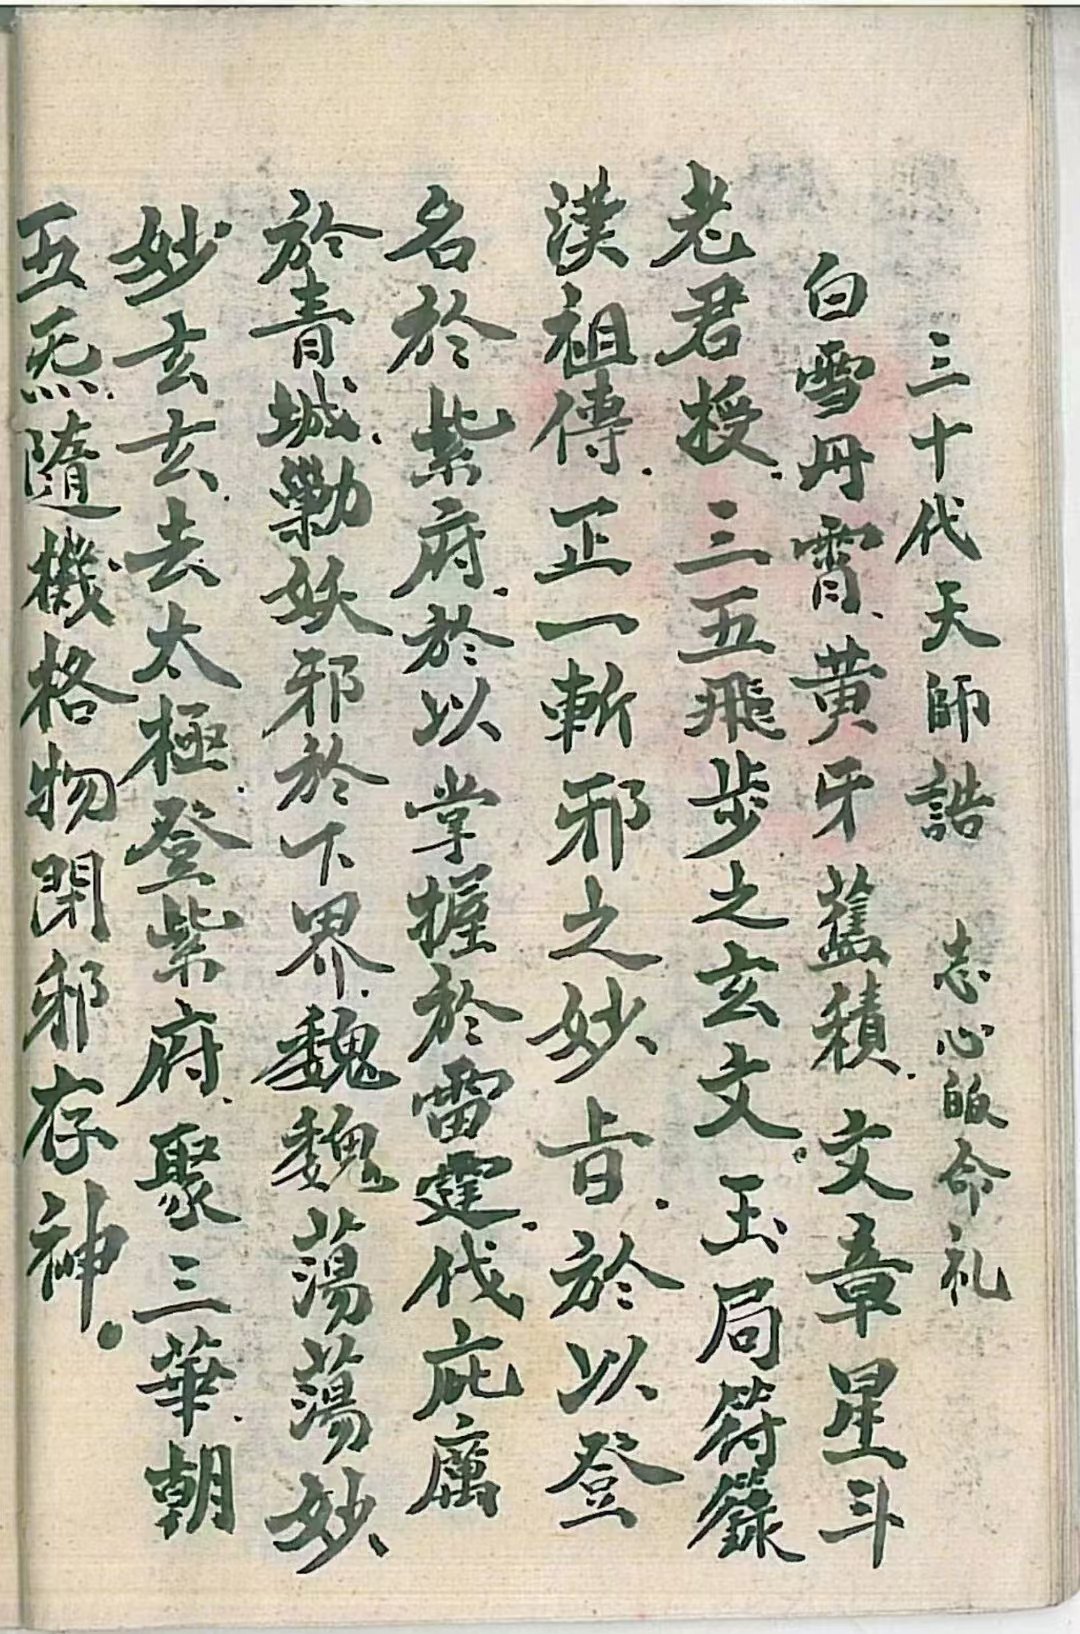 三十代天師誥 志心皈命礼
白雪丹霄黄牙蓝積文章星斗
老君授三五飛步之玄文玉局符籙
漢祖傳正一斬邪之妙旨於以登
名於紫府於以掌握於雷霆伐庇厲
於青城勦妖邪於下界魏魏蕩蕩妙
妙玄玄去太極登紫府聚三華朝
五炁隨機格物閑邪存神。